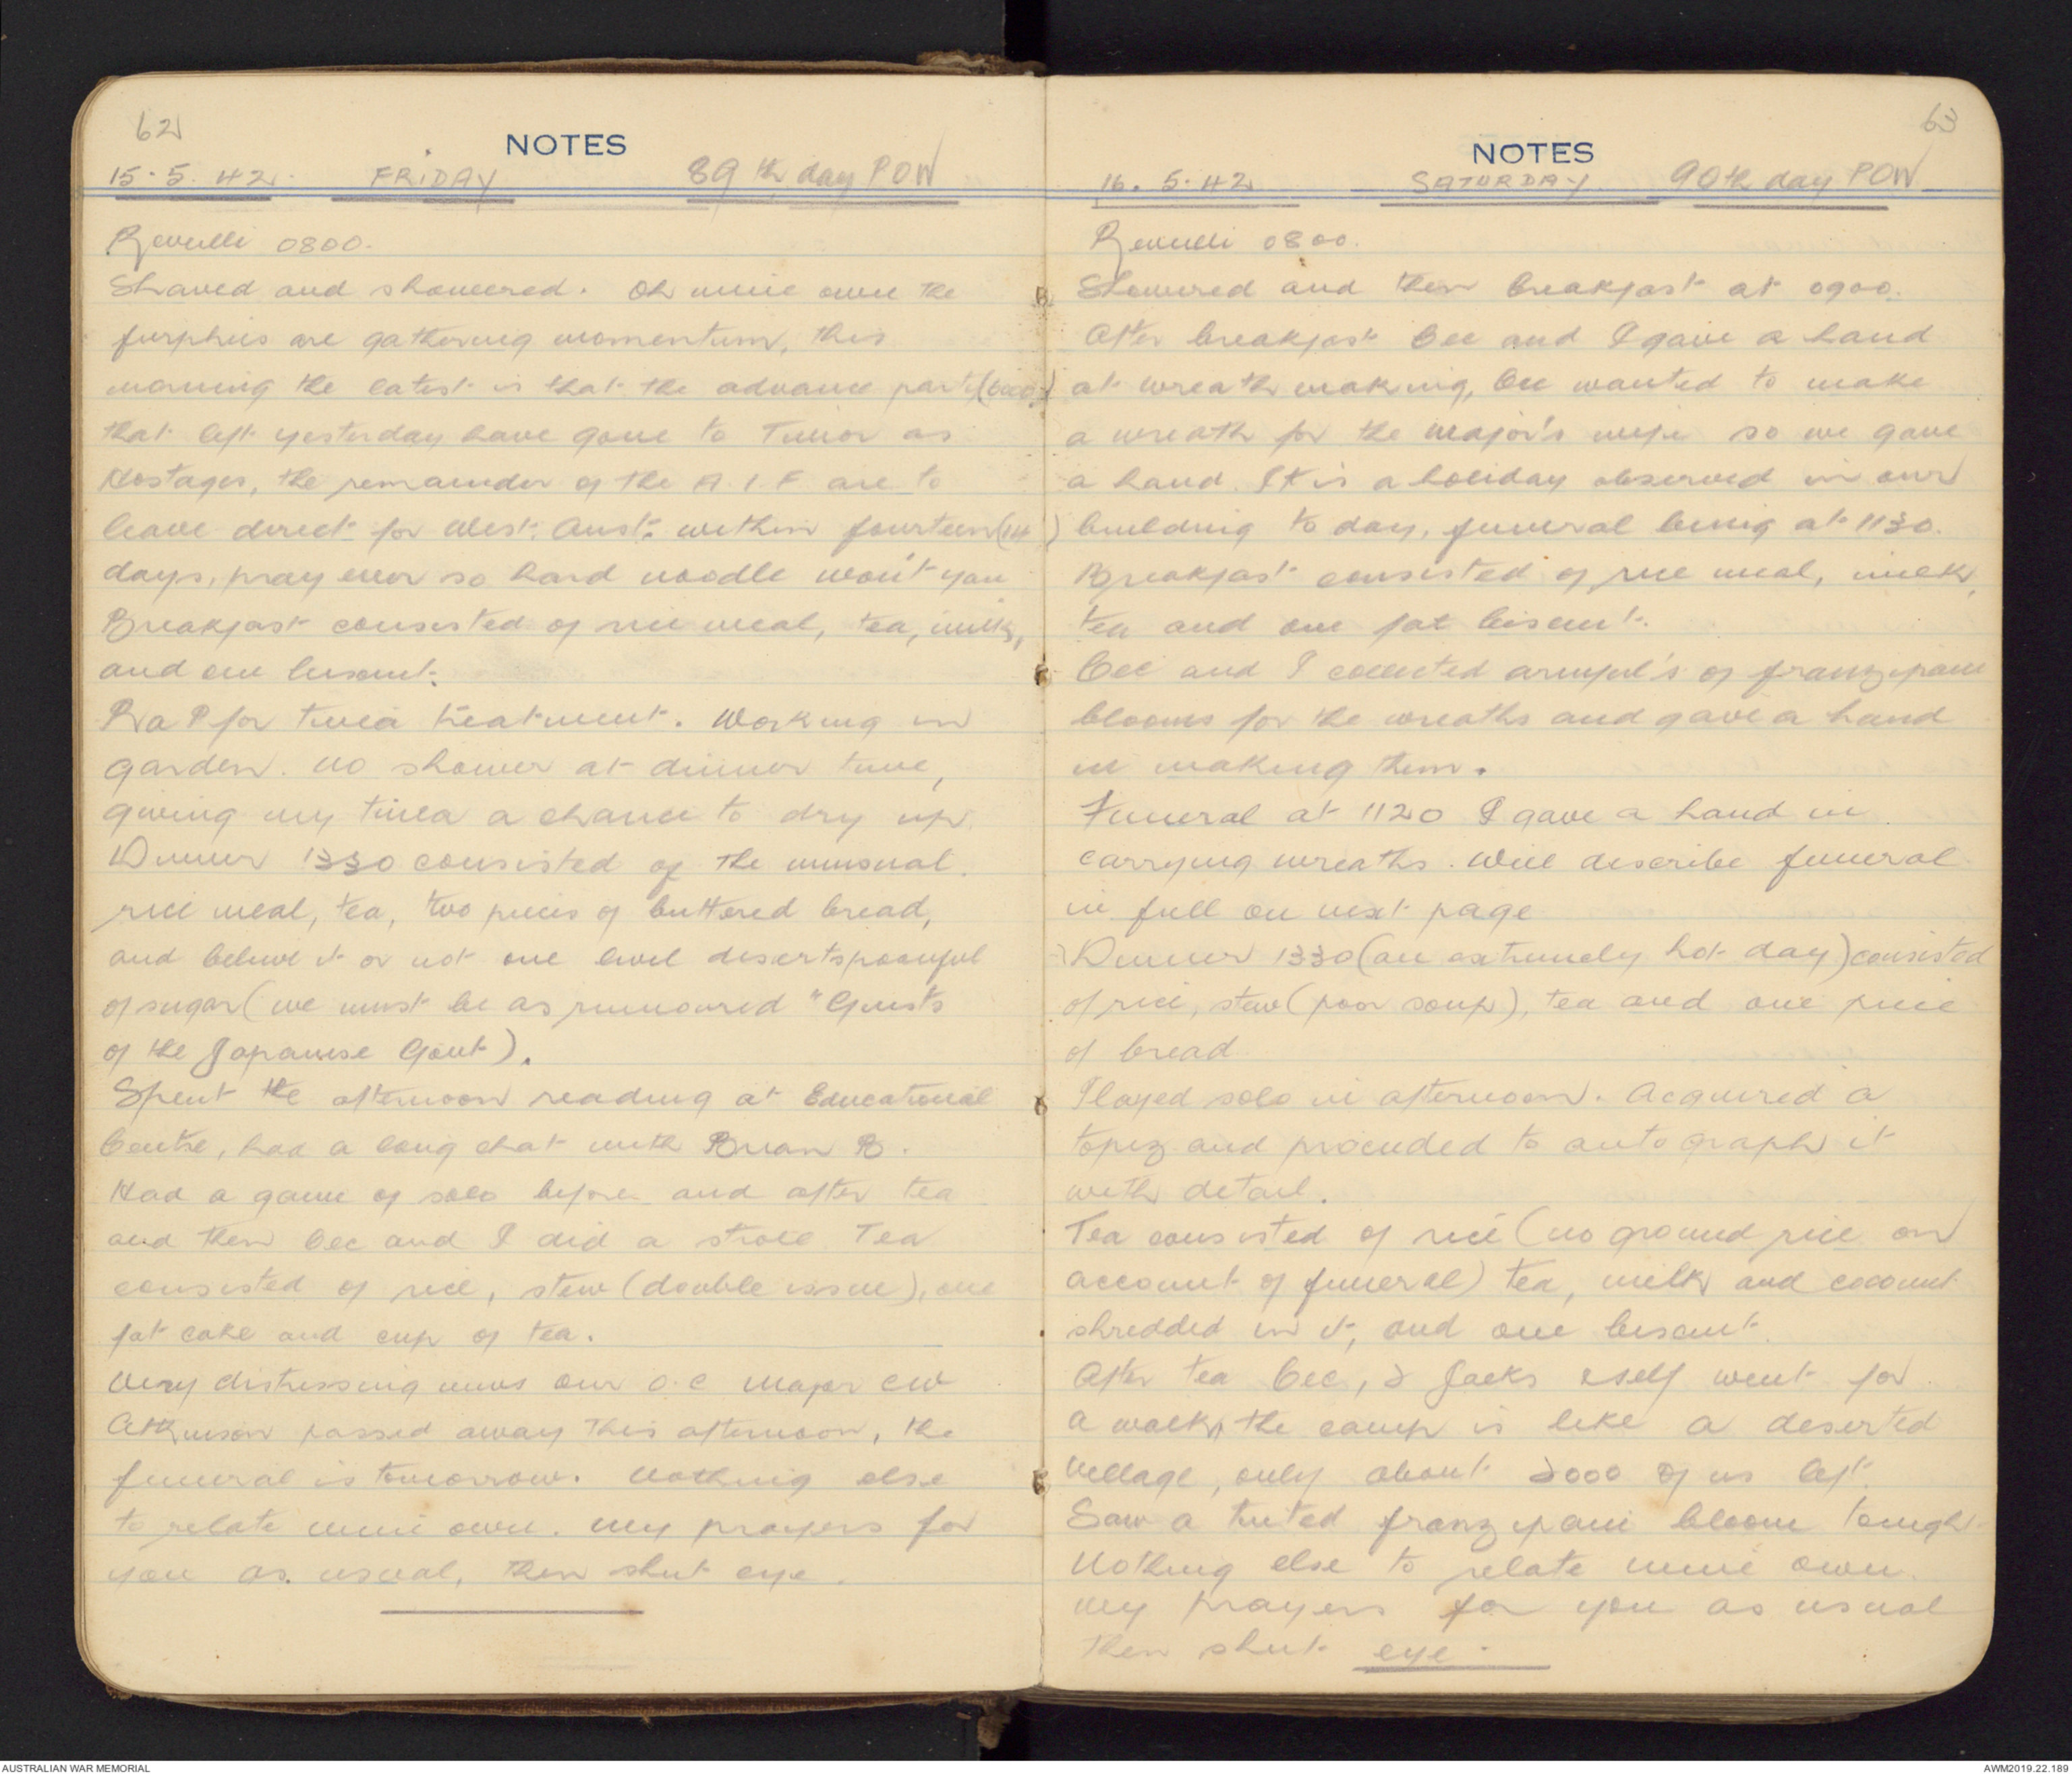 62
NOTES
15.5.42. FRIDAY 89th day POW
Revulli 0800.
Shaved and showered. Oh mine own the
furphies are gathering momentum, this
morning the latest is that the advance party (6000)
that left yesterday have gone to Timor as
Hostages, the remainder of the A.I.F are to
leave direct for West. Aust. within fourteen (14)
days, pray ever so hard noodle won't you
Breakfast consisted of rice meal, tea, milk,
and one biscuit.
RaP for tinea treatment. Working in
garden. No shower at dinner time,
giving my tinea a chance to dry up.
Dinner 1330 consisted of the unusual.
rice meal, tea, two pieces of buttered bread,
and believe it or not one level desertspoonful
of sugar (we must be as rumoured "Guests
of the Japanese Govt).
Spent the afternoon reading at Educational
Centre, had a long chat with Brian B.
Had a game of solo before and after tea
and then Cec and I did a stroll Tea
consisted of rice, stew (double issue), one
fat cake and cup of tea.
Very distressing news our O.C Major CW
passed away this afternoon, the
funeral is tomorrow. Nothing else
to relate mine own. My prayers for
you as usual, then shut eye.
63
NOTES
16.5.42 SATURDAY 90th day POW
Revulli 0800.
Showered and then breakfast at 0900.
After breakfast Cec and I gave a hand
at wreath making, Cec wanted to make
a wreath for the Major's wife so we gave
a hand. It is a holiday observed in our
building to day, funeral being at 1130.
Breakfast consisted of rice meal, milk,
tea and one fat biscuit.
Cec and I collected armful's of frangipani
blooms for the wreaths and gave a hand
in making them.
Funeral at 1120 I gave a hand in
carrying wreaths. Will describe funeral
in full on next page
Dinner 1330 (an extremely hot day) consisted
of rice, stew (poor soup), tea and one piece
of bread
Played solo in afternoon. Acquired a
topez and proceeded to autograph it
with detail.
Tea consisted of rice (no ground rice on
account of funeral) tea, milk and coconut
shredded in it, and one biscuit.
After tea Cec, J Jacks & self went for
a walk, the camp is like a deserted
village, only about 2000 of us left.
Saw a tinted frangipani bloom tonight
Nothing else to relate mine own.
My prayers for you as usual
then shut eye.
AUSTRALIAN WAR MEMORIAL
AWM2019.22.189